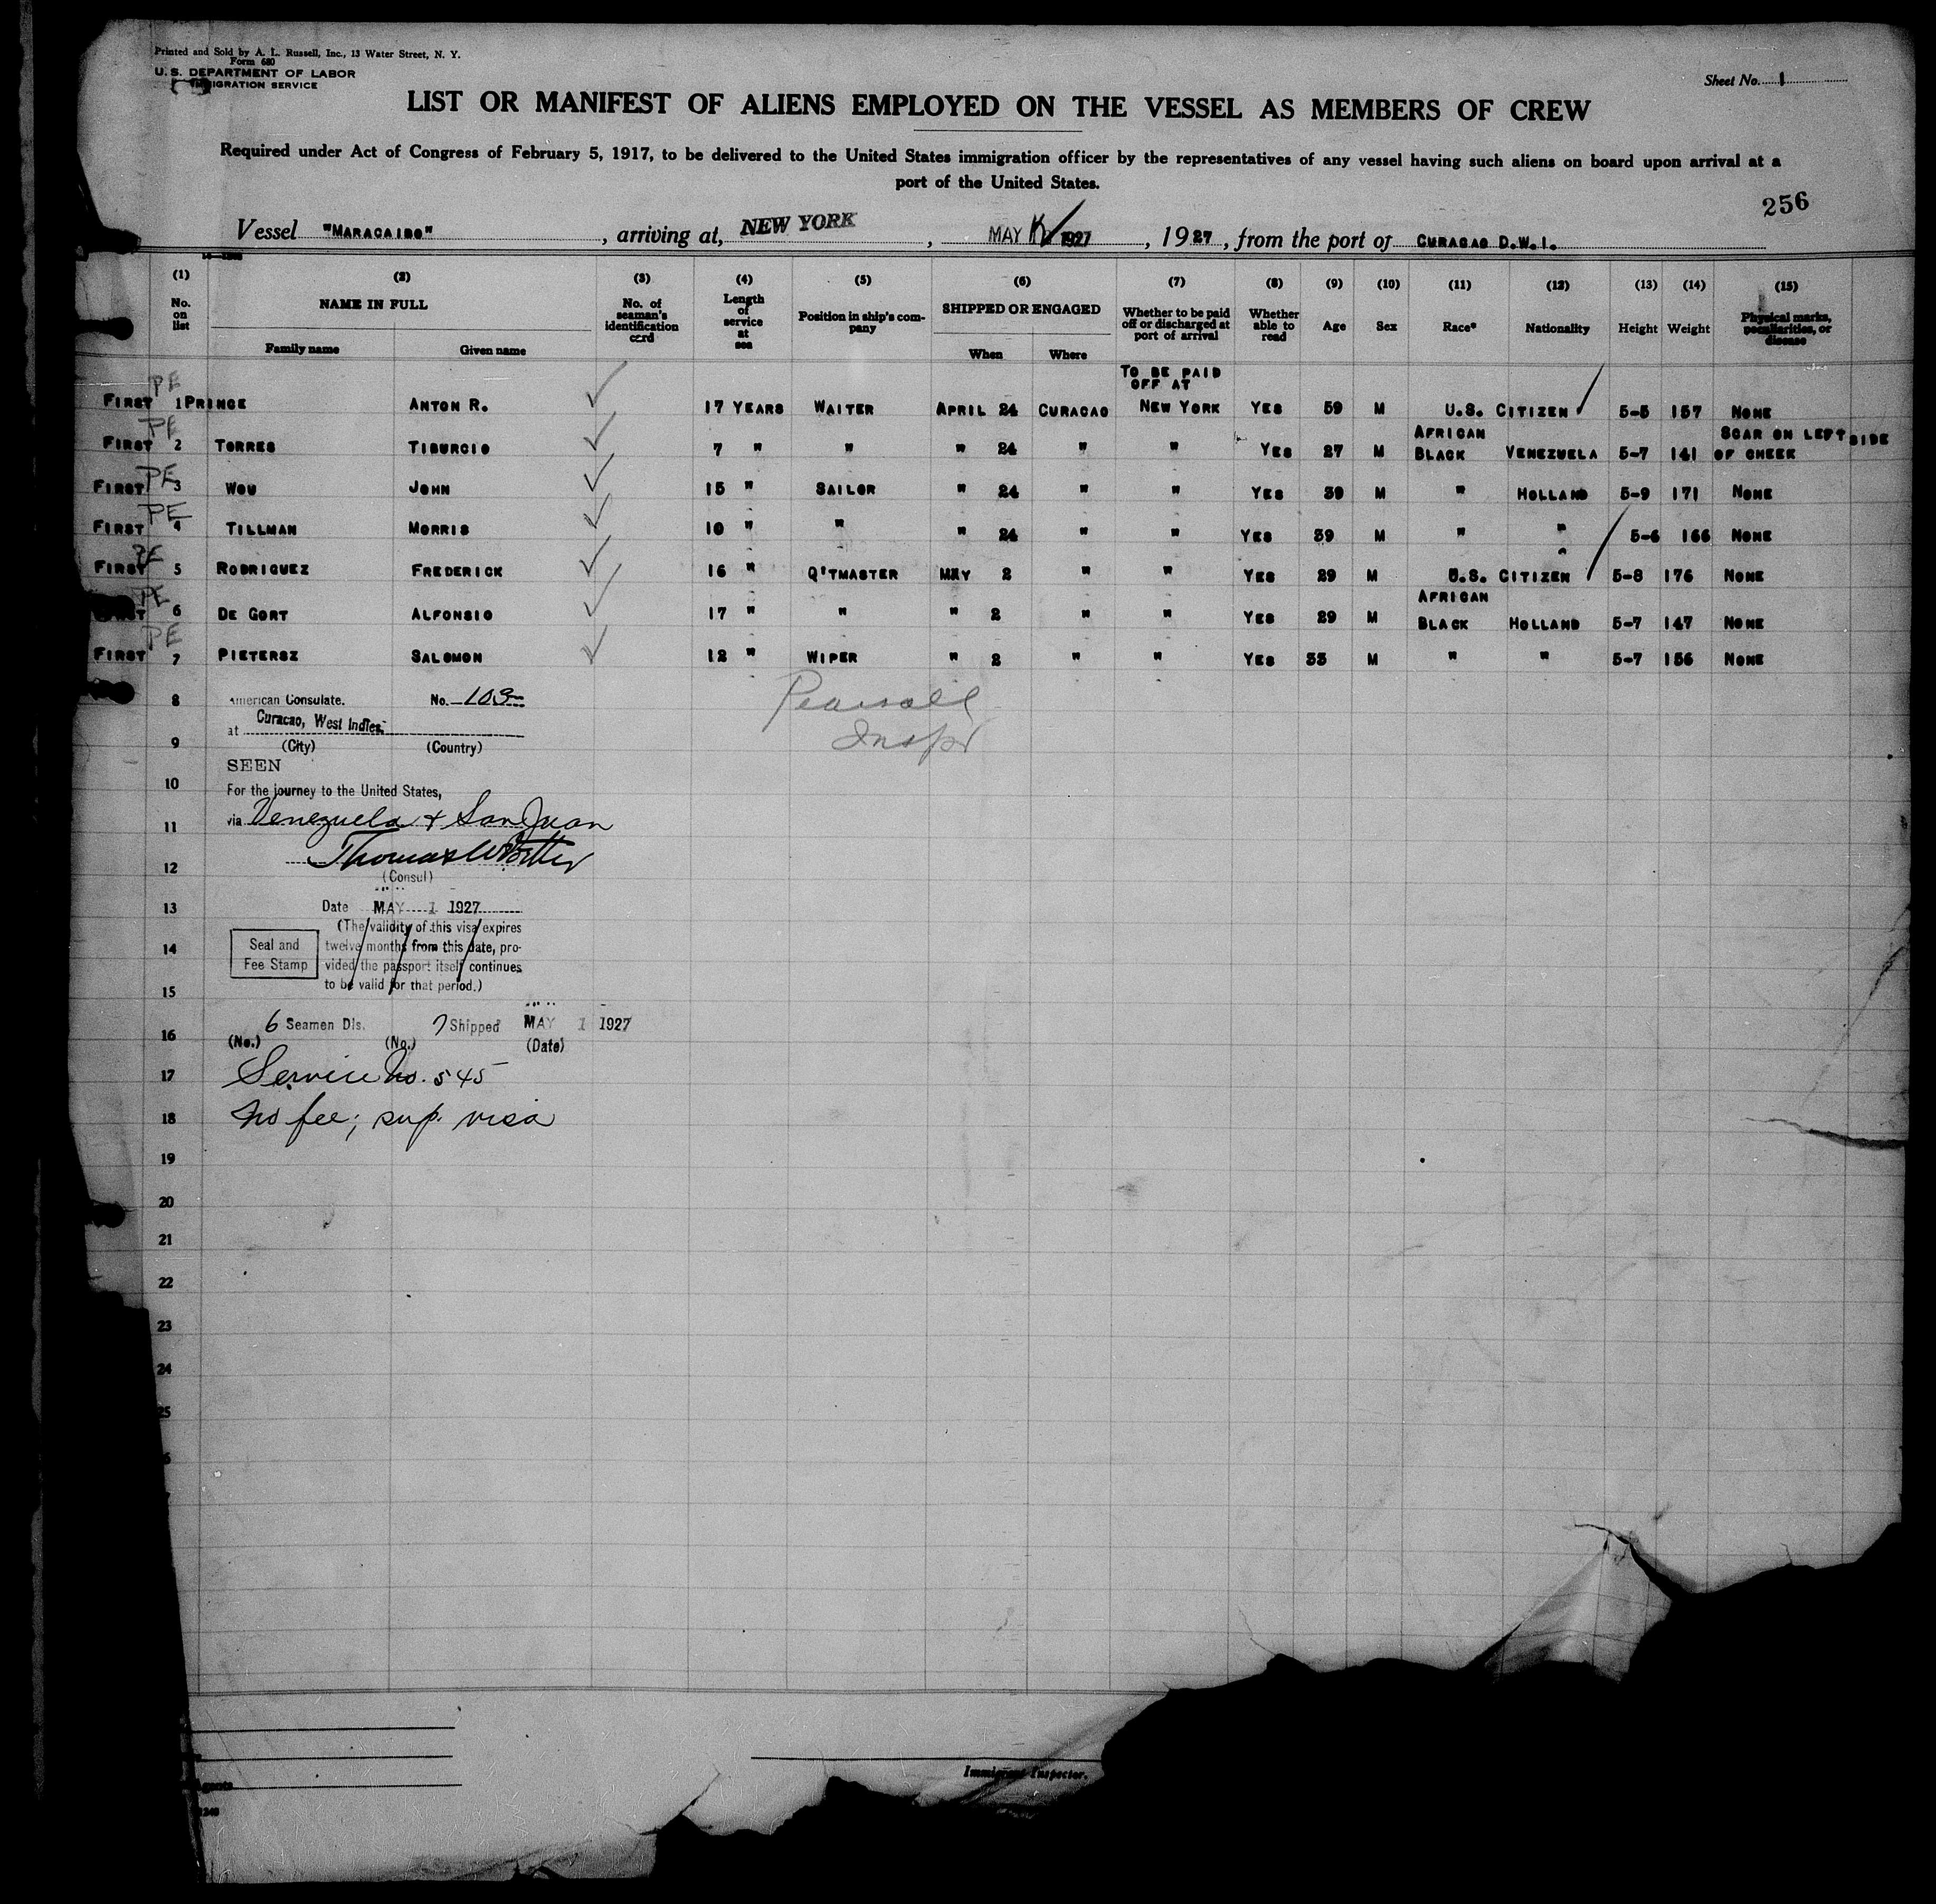 Printed and Sold by A. L. Russell, Inc., 13 Water Street, N. Y.
Form 680
U. S. DEPARTMENT OF LABOR
IMMIGRATION SERVICE
Sheet No. 1
LIST OR MANIFEST OF ALIENS EMPLOYED ON THE VESSEL AS MEMBERS OF CREW
Required under Act of Congress of February 5, 1917, to be delivered to the United States immigration officer by the representatives of any vessel having such aliens on board upon arrival at a
port of the United States.
256
Vessel "MARACAIBO", arriving at, NEW YORK, MAY 1927, 1927, from the port of CURACAO D.W.I.
(1) (2) (3) (4) (5) (6) (7) (8) (9) (10) (11) (12) (13) (14) (15)
No. on list NAME IN FULL Family name Given name No. of seaman's identification card Length of service at sea Position in ship's company SHIPPED OR ENGAGED When Where Whether to be paid off or discharged at port of arrival Whether able to read Age Sex Race* Nationality Height Weight Physical marks, peculiarities, or disease
PE
TO BE PAID OFF AT
FIRST 1 PRINCE ANTON R. 17 YEARS WAITER APRIL 24 CURACAO NEW YORK YES 59 M U.S. CITIZEN 5-5 157 NONE
PE
FIRST 2 TORRES TIBURCIO 7 " " " 24 " " YES 27 M AFRICAN BLACK VENEZUELA 5-7 141 SCAR ON LEFT SIDE OF CHEEK
PE
FIRST 3 WOU JOHN 15 " SAILOR " 24 " " YES 39 M " HOLLAND 5-9 171 NONE
PE
FIRST 4 TILLMAN MORRIS 10 " " " 24 " " YES 39 M " " 5-6 166 NONE
PE
FIRST 5 RODRIGUEZ FREDERICK 16 " Q'TMASTER MAY 2 " " YES 29 M U.S. CITIZEN 5-8 176 NONE
PE
FIRST 6 DE GORT ALFONSIO 17 " " " 2 " " YES 29 M AFRICAN BLACK HOLLAND 5-7 147 NONE
PE
FIRST 7 PIETERSZ SALOMON 12 " WIPER " 2 " " YES 33 M " " 5-7 156 NONE
8 American Consulate. No. 103
Pearsall
at Curacao, West Indies.
9 (City) (Country)
Inspr
SEEN
10 For the journey to the United States,
11 via Venezuela & San Juan
12 Thomas W
(Consul)
13 Date MAY 1 1927
(The validity of this visa expires
14 Seal and Fee Stamp twelve months from this date, pro-
vided the passport itself continues
15 to be valid for that period.)
16 6 Seamen Dis. 7 Shipped MAY 1 1927
(No.) (No.) (Date)
17 Service No. 545
18 no fee; sup. visa
19
20
21
22
23
24
25
6
Immigrant Inspector.
Agents
1248